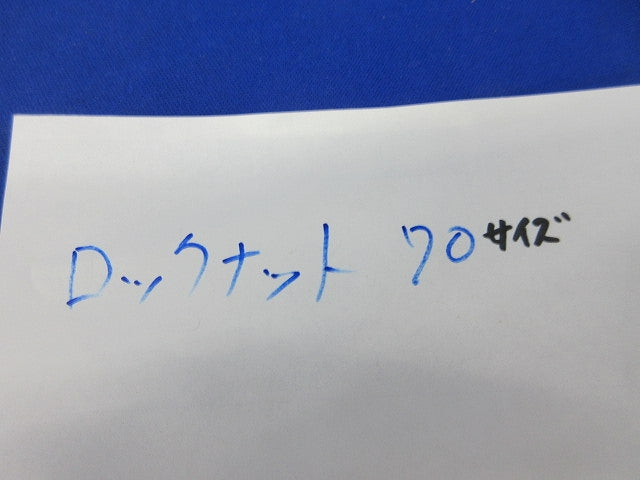 ロックナット 70サイズ